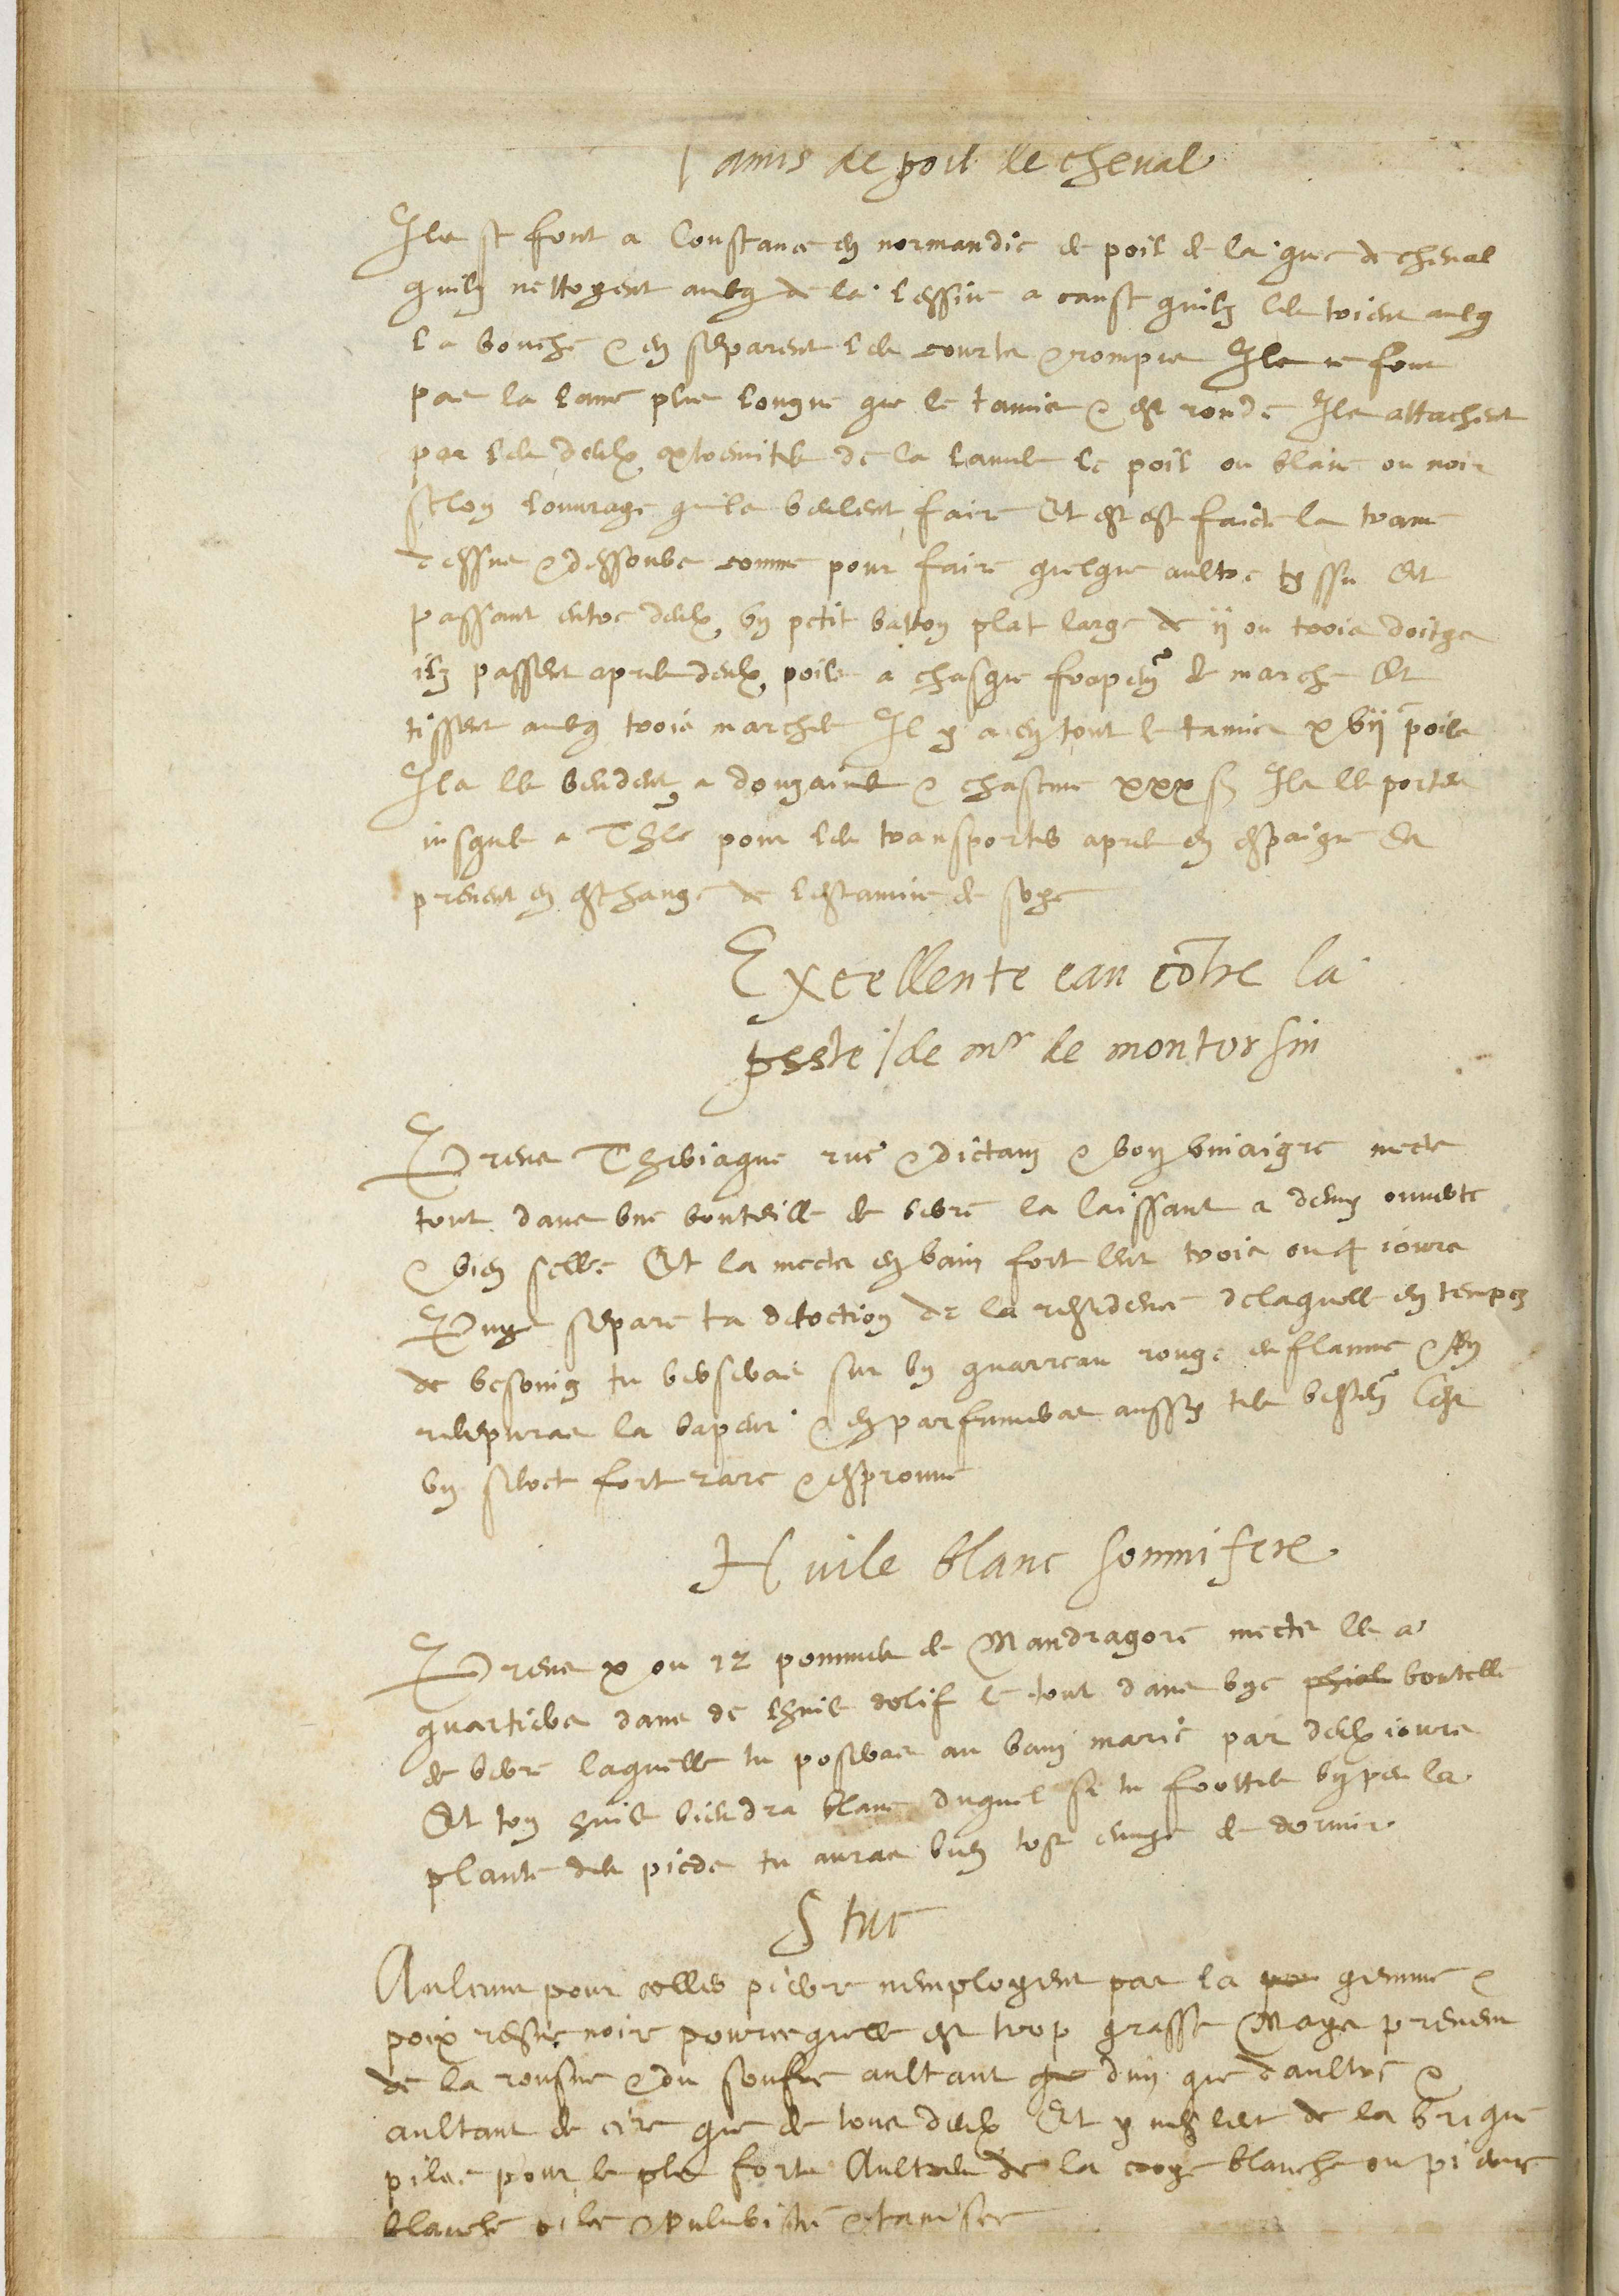 Tamis de poil de cheval
Ils se font a Constance en normandie de poil de la queue de cheval
quilz nettoyent aulcq de la lessive a cause quilz les trient aulcq
la bouche & en separent les courts & rompus Ils ne font
pas la lame plus longue que le tamis & est ronde Ils attachent
par les deulx extremites de la lame le poil ou blanc ou noir
selon louvrage quils veulent faire Et est est faicte la trame
dessus & dessoubs comme pour faire quelque aultre tyssu Et
passant entre deulx un petit baston plat large de ii ou trois doitgs
ilz passent apres deulx poils a chasque frapem{ent} de marche Et
tissent aulcq trois marches Il y a en tout le tamis xvii{c} poils
Ils les vendent a douzaines & chascune xxx s Ils les portent
jusques a Thle pour les transporter apres en espaigne Et
prenent en eschange de lestamine de soye
Excellente eau cõtre la
peste / de mr de montorsin
Prens Theriaque rue & dictam & bon vinaigre mects
tout dans une bouteille de verre la laissant a demy ouverte
& bien sellee Et la mects en bain fort lent trois ou 4 jours
Puys separe ta decoction de la residence de laquelle en temps
de besoing tu verseras sur un quarreau rouge enflamme & en
recepvras la vapeur & en parfumeras aussy tes vestem{ents} Cest
un secret fort rare & esprouve
Huile blanc somnifere
Prens x ou 12 pommes de Mandragore mects les a
quartiers dans de lhuile dolif le tout dans une phiole bouteille
de verre laquelle tu poseras au bain marie par deulx jours
Et ton huile viendra blanc duquel si tu frottes un peu la
plante des pieds tu auras bien tost envye de dormir
Stuc
Aulcuns pour coller pierre nemployent pas la poi gemme &
poix resine noire pource quelle est trop grasse Mays prenent
de la rousine & du soufre aultant que dun que daultre &
aultant de cire que de tous deulx Et y meslent de la brique
pilee pour le plus fort Aultres de la croye blanche ou pierre
blanche pilee & pulverisee & tamisee